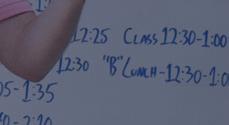 12:25 CLASS 12:30-1:00
12:30 "B" LUNCH-12:30-1:0
05-1:35